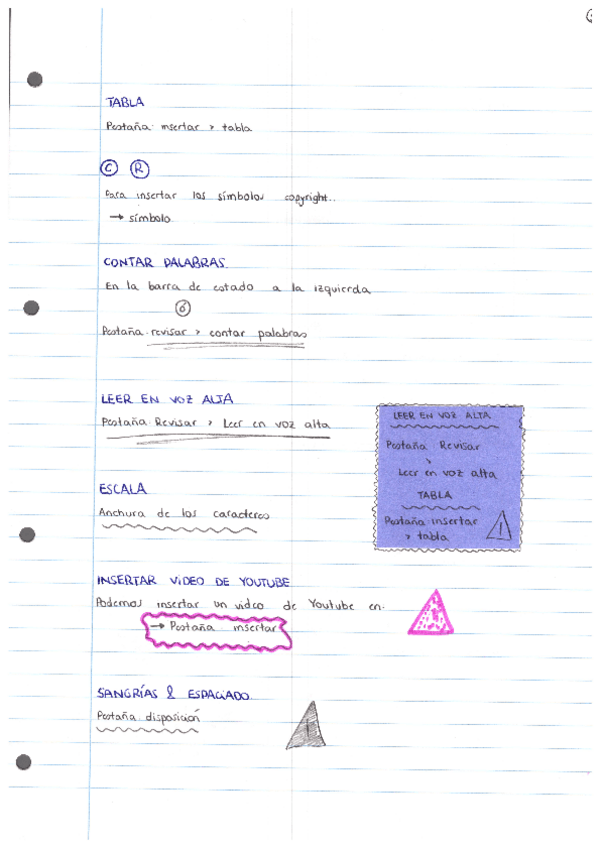 TABLA
Pestaña: insertar > tabla
© ®
Para insertar los símbolos copyright..
→ símbolo
CONTAR PALABRAS
En la barra de estado a la izquierda
ó
Pestaña: revisar > contar palabras
LEER EN VOZ ALTA
Pestaña: Revisar > Leer en voz alta
ESCALA
Anchura de los caracteres
INSERTAR VIDEO DE YOUTUBE
Podemos insertar un video de Youtube en:
→ Pestaña insertar
SANGRÍAS & ESPACIADO
Pestaña disposición
LEER EN VOZ ALTA
Pestaña Revisar
>
Leer en voz alta
TABLA
Pestaña: insertar
> tabla